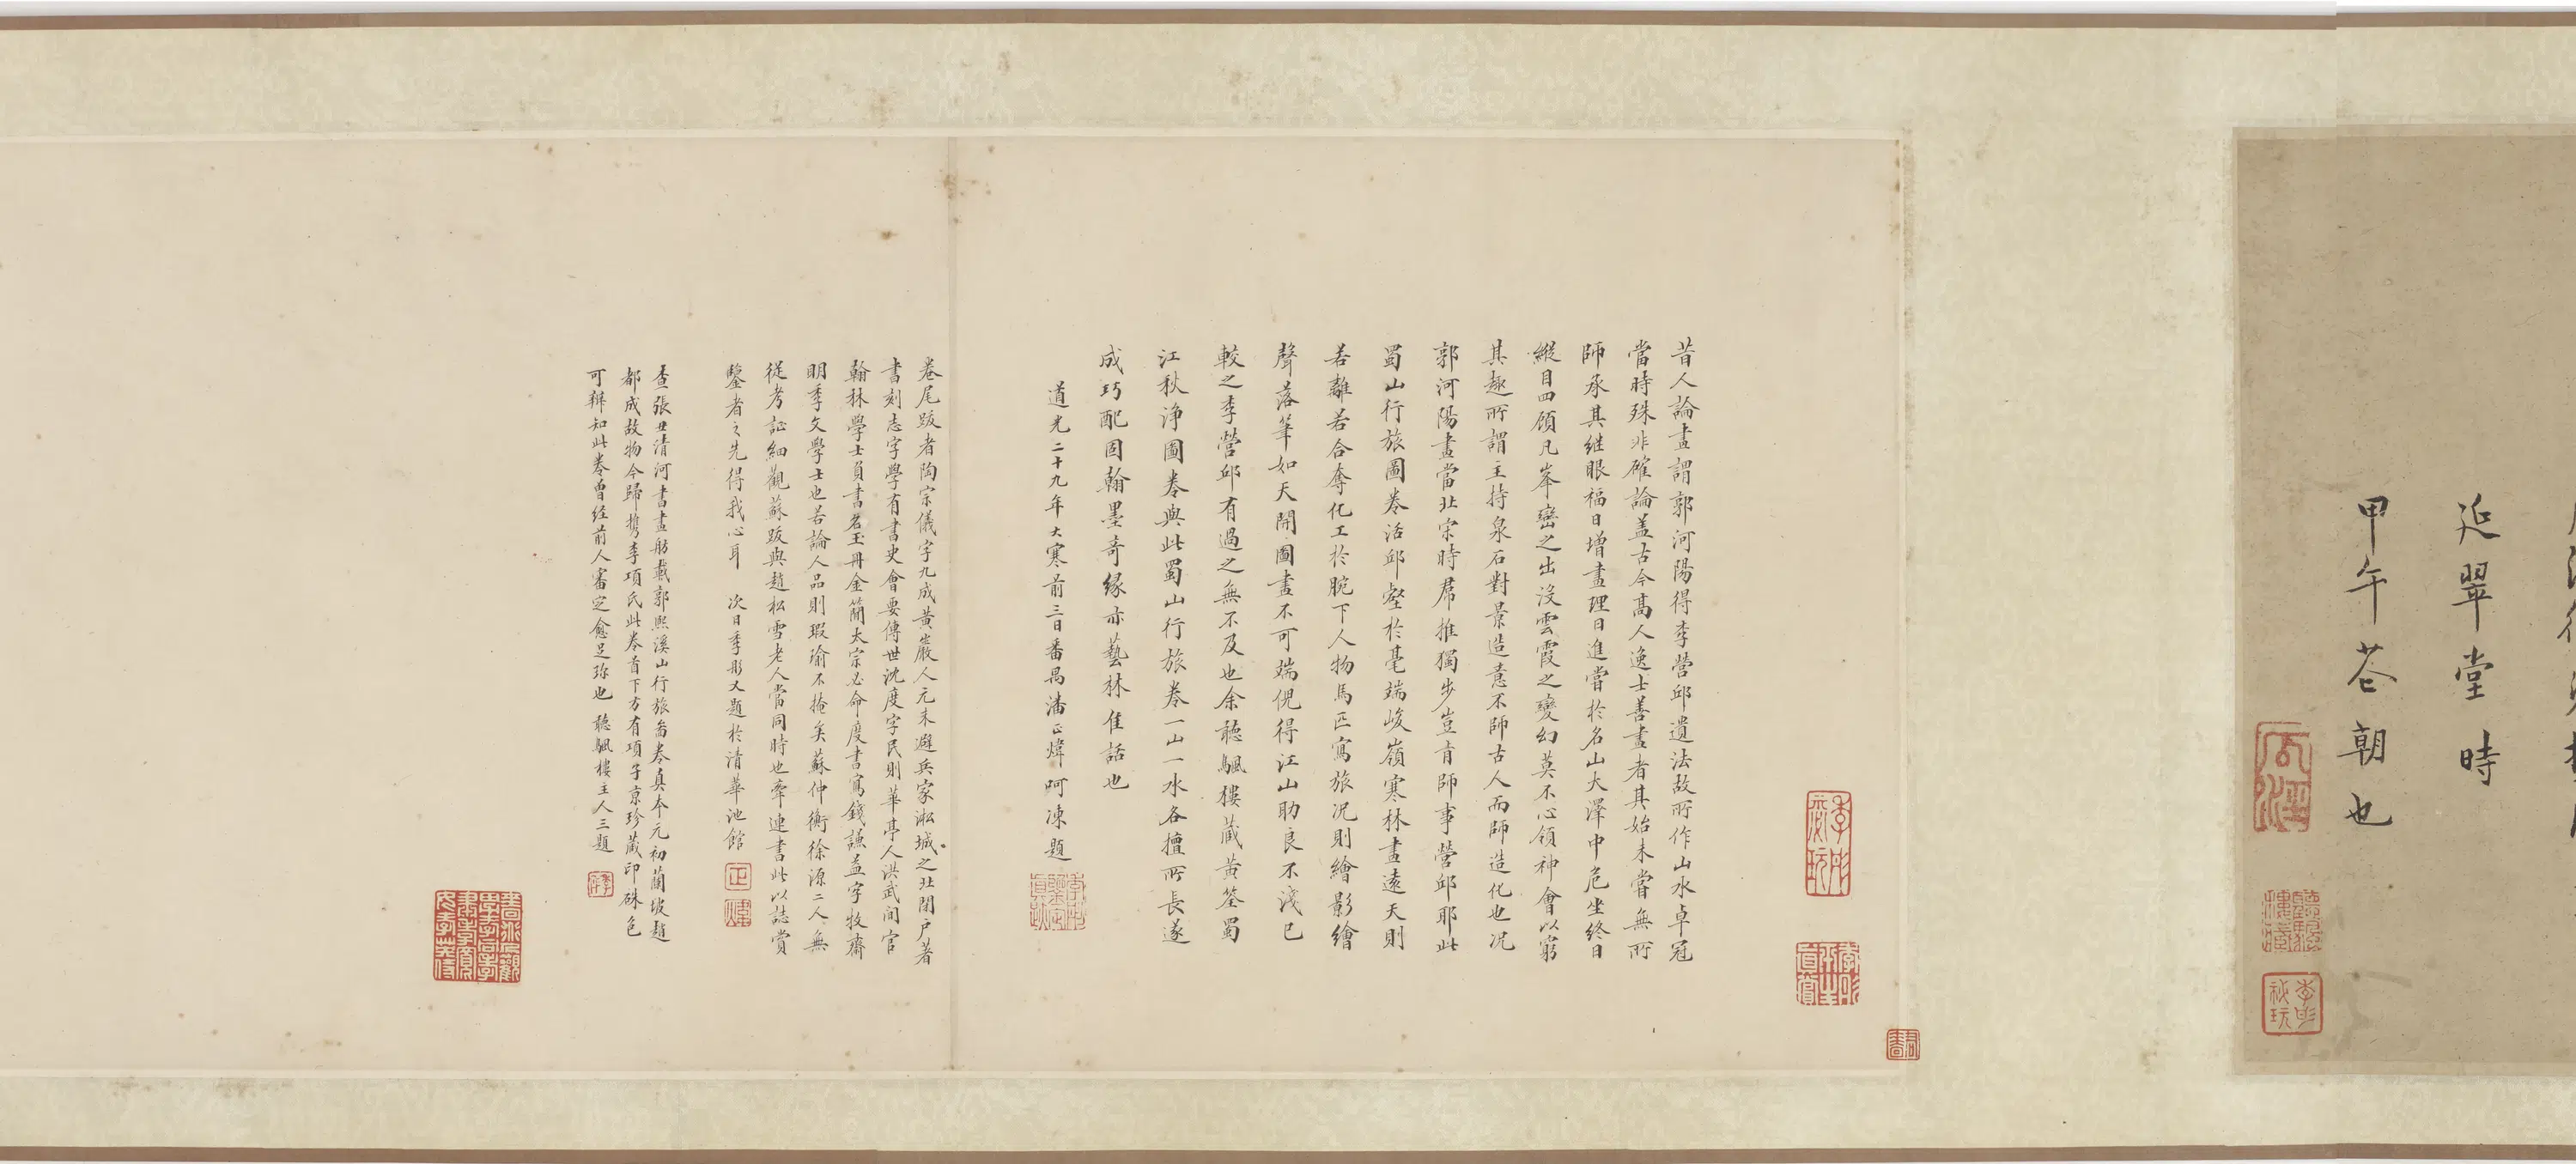 延翠堂時
甲午菴朝也
昔人論畫謂郭河陽得李營邱遺法故所作山水卓冠
當時殊非確論蓋古今高人逸士善畫者其始未嘗無所
師承其继眼福日增畫理日進嘗於名山大澤中危坐終日
縱目四顧凡峯巒之出沒雲霞之變幻莫不心領神會以窮
其趣所謂主持泉石對景造意不師古人而師造化也况
郭河陽畫當北宋時羣推獨步豈肯師事營邱耶此
蜀山行旅圖卷活邱壑於毫端峻嶺寒林畫遠天則
若離若合奪化工於腕下人物馬匹寫旅况則繪影繪
聲落筆如天開圖畫不可端倪得江山助良不淺已
較之李營邱有過之無不及也余聽颿樓藏黃筌蜀
江秋净圖卷與此蜀山行旅卷一山一水各擅所長遂
成巧配固翰墨奇缘亦藝林佳話也
道光二十九年大寒前三日番禺潘正煒呵凍題
卷尾跋者陶宗儀字九成黃巖人元末避兵家淞城之北閉户著
書刻志字學有書史會要傳世沈度字民則華亭人洪武間官
翰林學士負書名玉冊金簡太宗必命度書寫錢謙益字牧齋
明季文學士也若論人品則瑕瑜不掩矣蘇仲衡徐源二人無
從考証細觀蘇跋與趙松雪老人當同時也牽連書此以誌賞
鑒者之先得我心耳 次日季彤又題於清華池館
正煒
查張丑清河書畫舫載郭熙溪山行旅畫卷真本元初蘭坡趙
都成故物今歸携李項氏此卷首下方有項子京珍藏印硃色
可辨知此卷曾经前人審定愈足珍也 聽颿樓主人三題